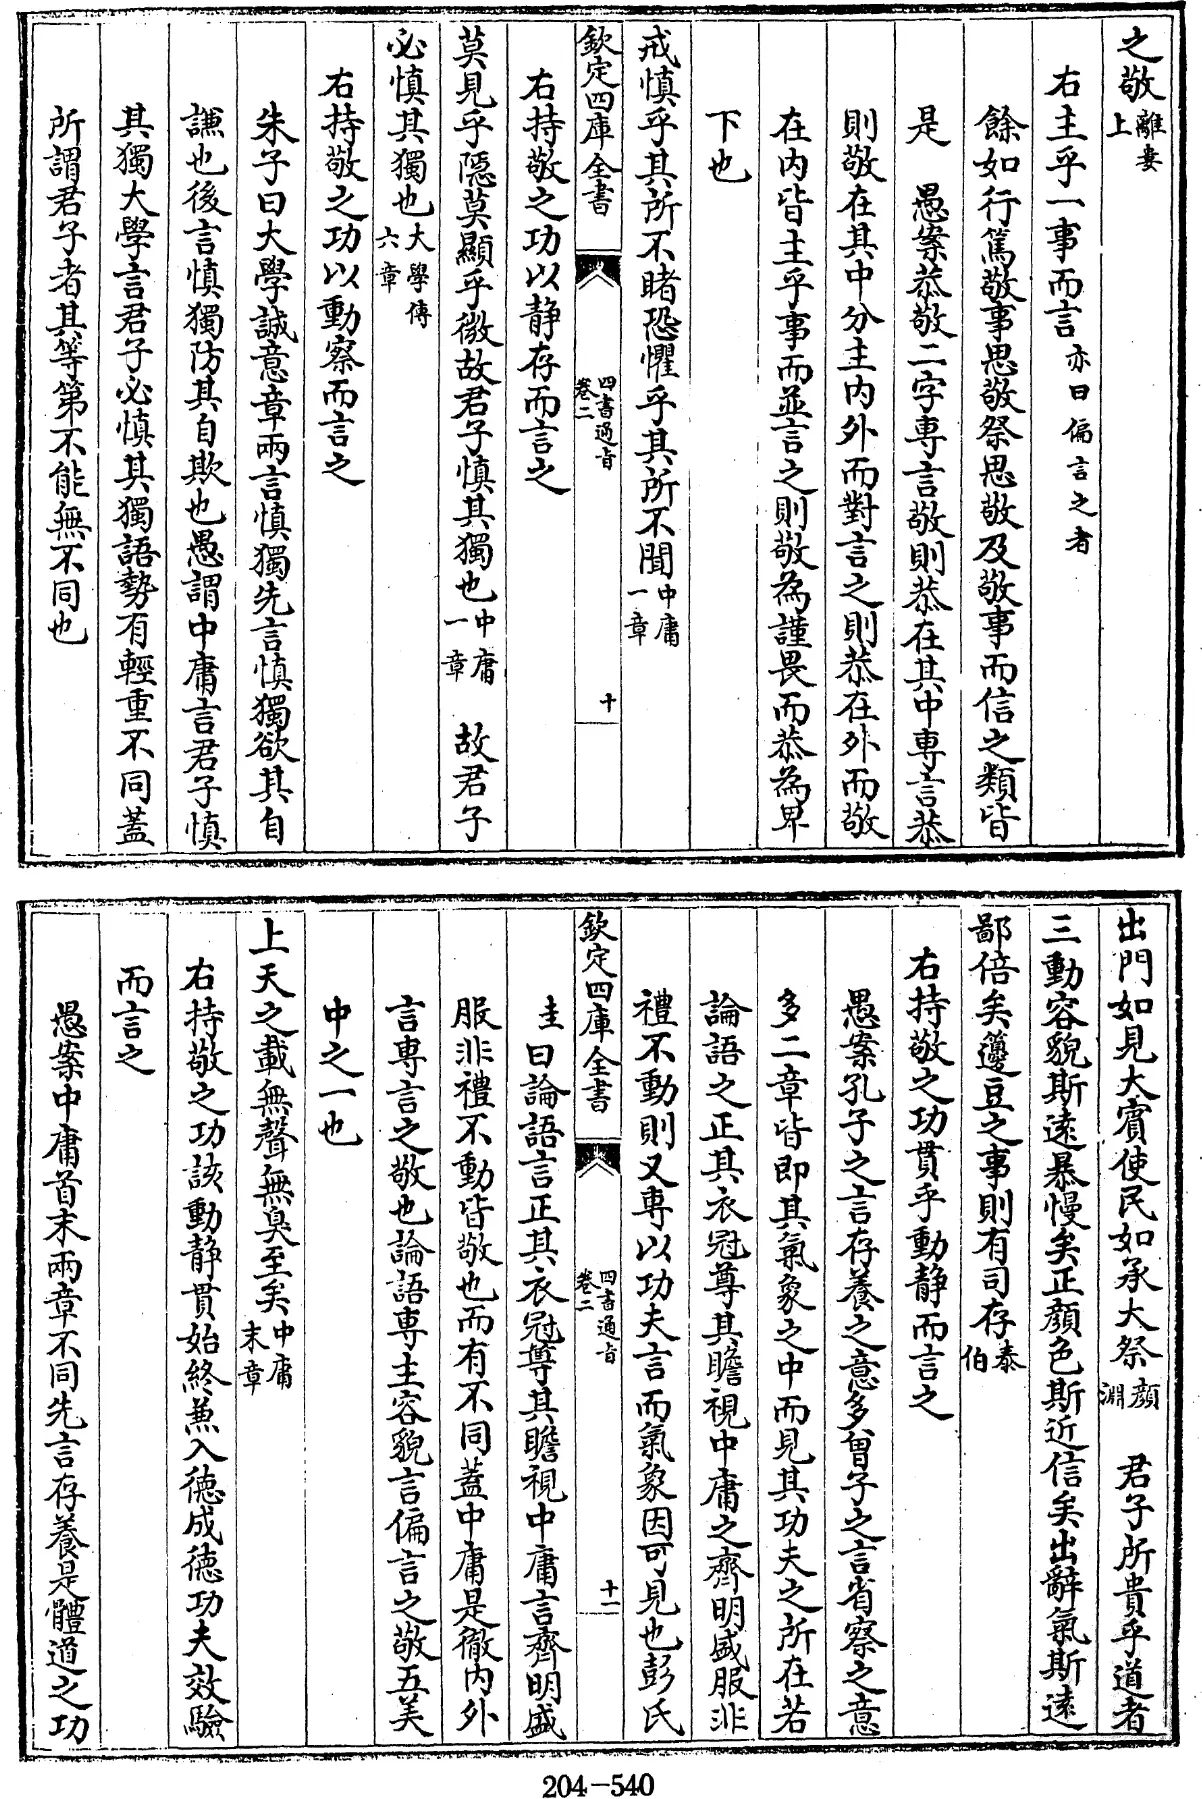 之敬離婁上
右主乎一事而言亦曰偏言之者
餘如行篤敬事思敬祭思敬及敬事而信之類皆
是　愚案恭敬二字專言敬則恭在其中專言恭
則敬在其中分主内外而對言之則恭在外而敬
在内皆主乎事而並言之則敬為謹畏而恭為卑
下也
戒慎乎其所不睹恐懼乎其所不聞中庸一章
欽定四庫全書
四書通旨
卷二
十
右持敬之功以静存而言之
莫見乎隱莫顯乎微故君子慎其獨也中庸一章　故君子
必慎其獨也大學傳六章
右持敬之功以動察而言之
朱子曰大學誠意章兩言慎獨先言慎獨欲其自
謙也後言慎獨防其自欺也愚謂中庸言君子慎
其獨大學言君子必慎其獨語勢有輕重不同蓋
所謂君子者其等第不能無不同也
出門如見大賓使民如承大祭顔淵　君子所貴乎道者
三動容貌斯遠暴慢矣正顔色斯近信矣出辭氣斯遠
鄙倍矣籩豆之事則有司存泰伯
右持敬之功貫乎動静而言之
愚案孔子之言存養之意多曾子之言省察之意
多二章皆即其氣象之中而見其功夫之所在若
論語之正其衣冠尊其瞻視中庸之齊明盛服非
禮不動則又專以功夫言而氣象因可見也彭氏
欽定四庫全書
四書通旨
卷二
十一
圭曰論語言正其衣冠尊其瞻視中庸言齊明盛
服非禮不動皆敬也而有不同蓋中庸是徹内外
言專言之敬也論語專主容貌言偏言之敬五美
中之一也
上天之載無聲無臭至矣中庸末章
右持敬之功該動静貫始終兼入德成德功夫效驗
而言之
愚案中庸首末兩章不同先言存養是體道之功
204-540